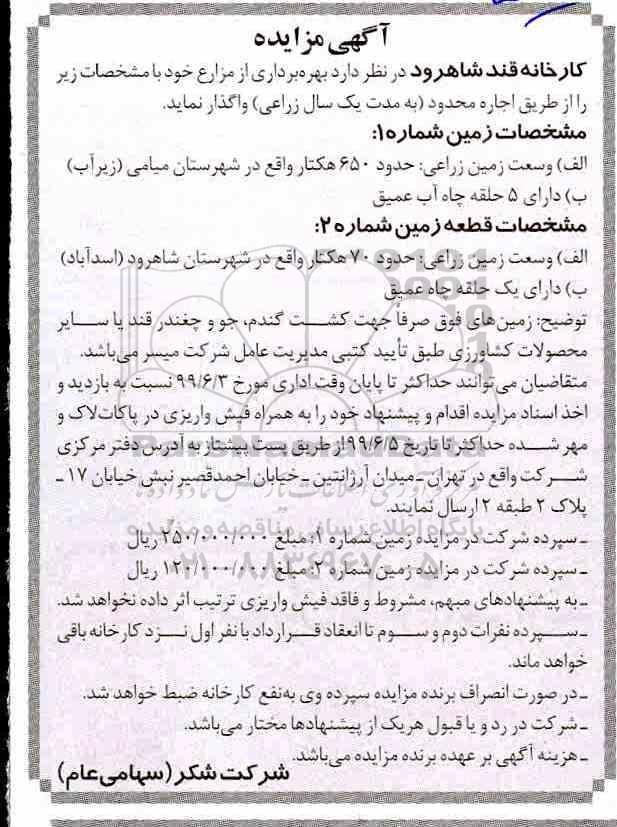 آگهی مزایده
کارخانه قند شاهرود در نظر دارد بهره‌برداری از مزارع خود با مشخصات زیر
را از طریق اجاره محدود (به مدت یک سال زراعی) واگذار نماید.
مشخصات زمین شماره ۱:
الف) وسعت زمین زراعی: حدود ۶۵۰ هکتار واقع در شهرستان میامی (زیرآب)
ب) دارای ۵ حلقه چاه آب عمیق
مشخصات قطعه زمین شماره ۲:
الف) وسعت زمین زراعی: حدود ۷۰ هکتار واقع در شهرستان شاهرود (اسدآباد)
ب) دارای یک حلقه چاه عمیق
توضیح: زمین‌های فوق صرفاً جهت کشت گندم، جو و چغندر قند یا سایر
محصولات کشاورزی طبق تأیید کتبی مدیریت عامل شرکت میسر می‌باشد.
متقاضیان می‌توانند حداکثر تا پایان وقت اداری مورخ ۹۹/۶/۳ نسبت به بازدید و
اخذ اسناد مزایده اقدام و پیشنهاد خود را به همراه فیش واریزی در پاکات لاک و
مهر شده حداکثر تا تاریخ ۹۹/۶/۵ از طریق پست پیشتاز به آدرس دفتر مرکزی
شرکت واقع در تهران ـ میدان آرژانتین ـ خیابان احمدقصیر نبش خیابان ۱۷ ـ
پلاک ۲ طبقه ۲ ارسال نمایند.
ـ سپرده شرکت در مزایده زمین شماره ۱: مبلغ ۲۵۰/۰۰۰/۰۰۰ ریال
ـ سپرده شرکت در مزایده زمین شماره ۲: مبلغ ۱۲۰/۰۰۰/۰۰۰ ریال
ـ به پیشنهادهای مبهم، مشروط و فاقد فیش واریزی ترتیب اثر داده نخواهد شد.
ـ سپرده نفرات دوم و سوم تا انعقاد قرارداد با نفر اول نزد کارخانه باقی
خواهد ماند.
ـ در صورت انصراف برنده مزایده سپرده وی به‌نفع کارخانه ضبط خواهد شد.
ـ شرکت در رد و یا قبول هریک از پیشنهادها مختار می‌باشد.
ـ هزینه آگهی بر عهده برنده مزایده می‌باشد.
شرکت شکر (سهامی عام)
پایگاه اطلاع رسانی مناقصه و مزایده
۰۲۱-۸۸۳۴۹۶۷۰-۵